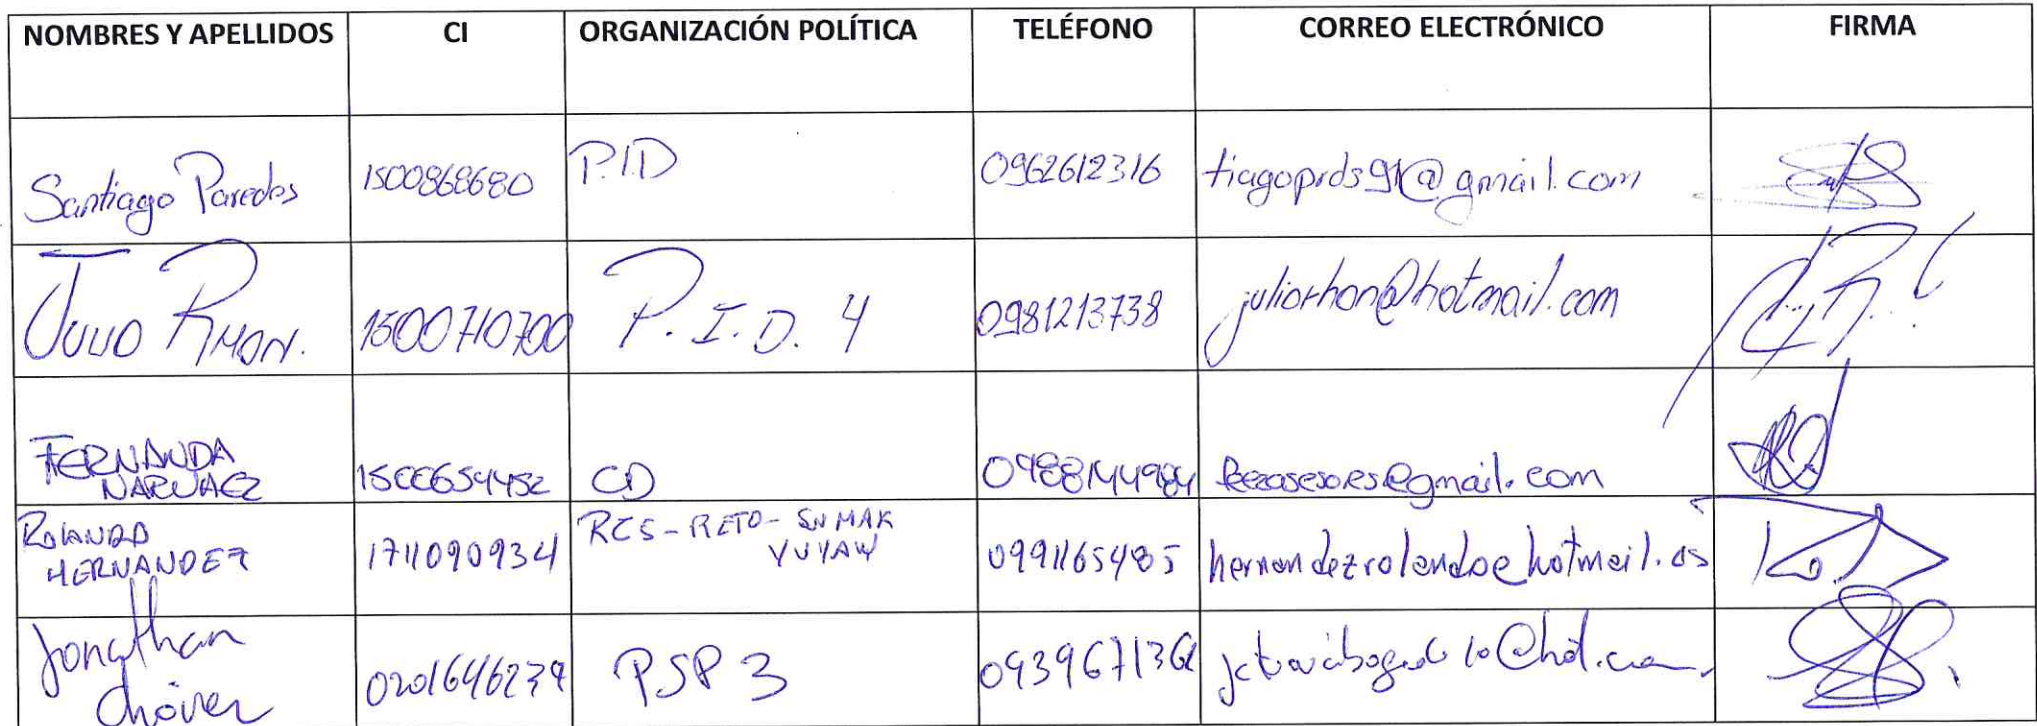 NOMBRES Y APELLIDOS CI ORGANIZACIÓN POLÍTICA TELÉFONO CORREO ELECTRÓNICO FIRMA
Santiago Paredes 1500868680 P.I.D 0962612316 tiagoprds91@gmail.com
Julio Rhon. 1500710700 P.I.D. 4 0981213738 juliorhon@hotmail.com
FERNANDA
NARVAEZ 1500654452 CD
ROLANDO
HERNANDEZ 1711090934 RCS-RETO-SUMAK
YUYAY 0991165485 hernandezrolando@hotmail.es
Jonathan
Chávez PSP 3